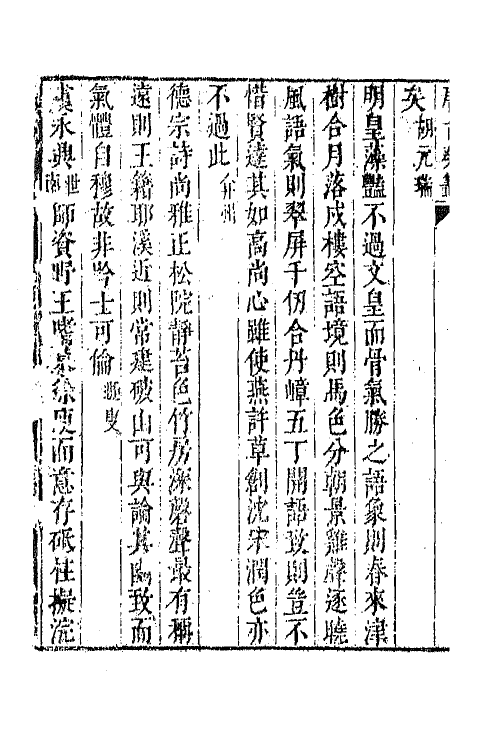 矣胡元瑞
明皇藻豔不過文皇而骨氣勝之語象則春來津
樹合月落戍樓空語境則馬色分朝景雞聲逐曉
風語氣則翠屏千仞合丹嶂五丁開語致則豈不
惜賢達其如高尚心雖使燕許草創沈宋潤色亦
不過此弇州
德宗詩尚雅正松院靜苔色竹房深磬聲最有稱
遠則王籍耶溪近則常建破山可與論其幽致而
氣體自穆故非吟士可倫遯叟
虞永興世南師資野王嗜慕徐庾而意存砥柱擬浣